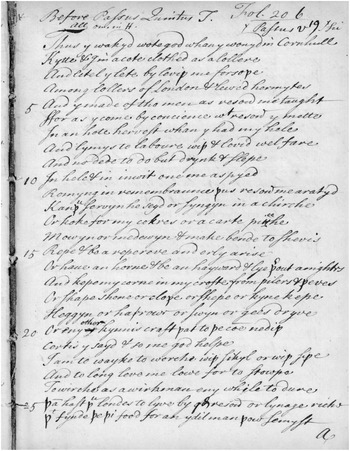 Before Passus Quintus T. Fol. 20 b
all omit in H. Passus v
Thus y wakyd wote god whan y wonyd in Cornhull
Kytte & y in a cote clothed as a lollere
And litely lete by leve me for sope
Among lollers of london & lewed hermytes
5 And y made of tho men as reson me taught
ffor as y come by concience wt reson y mette
In an hote hervest whan y had my hele
And lymys to laboure wiþ & lovid welfare
And no dede to do but drynk & slepe
10 In hele & in inwit one me aspyed
Romyng in remembraunce þus reson me aratyd
Kanstu servyn he seyd or syngyn in a churche
Or koke for my cokres or a carte picche
Mowyn or medewyn & make bonde to shevis
15 Repe & be a repereve and erly arise
Or have an horne & be an hayward & lye þer out a nightes
And kepe my corne in my crofte from pikers & þeves
Or shape shone or cloþe or shepe or kyne kepe
Heggyn or harowe or swyn or gees dryve
20 Or eny other kynnis craft þat to þe coe nediþ
Certis y said & so me god helpe
I am to wayke to werche wiþ sykyl or wiþ siþe
And to long leve me lowe for to stowpe
To wirche as a wirkeman eny while to dure
25 þan hast þu londes to lyve by qd reson or lynage riche
þt fynde þe þi food for an ydil man þow semyst
a